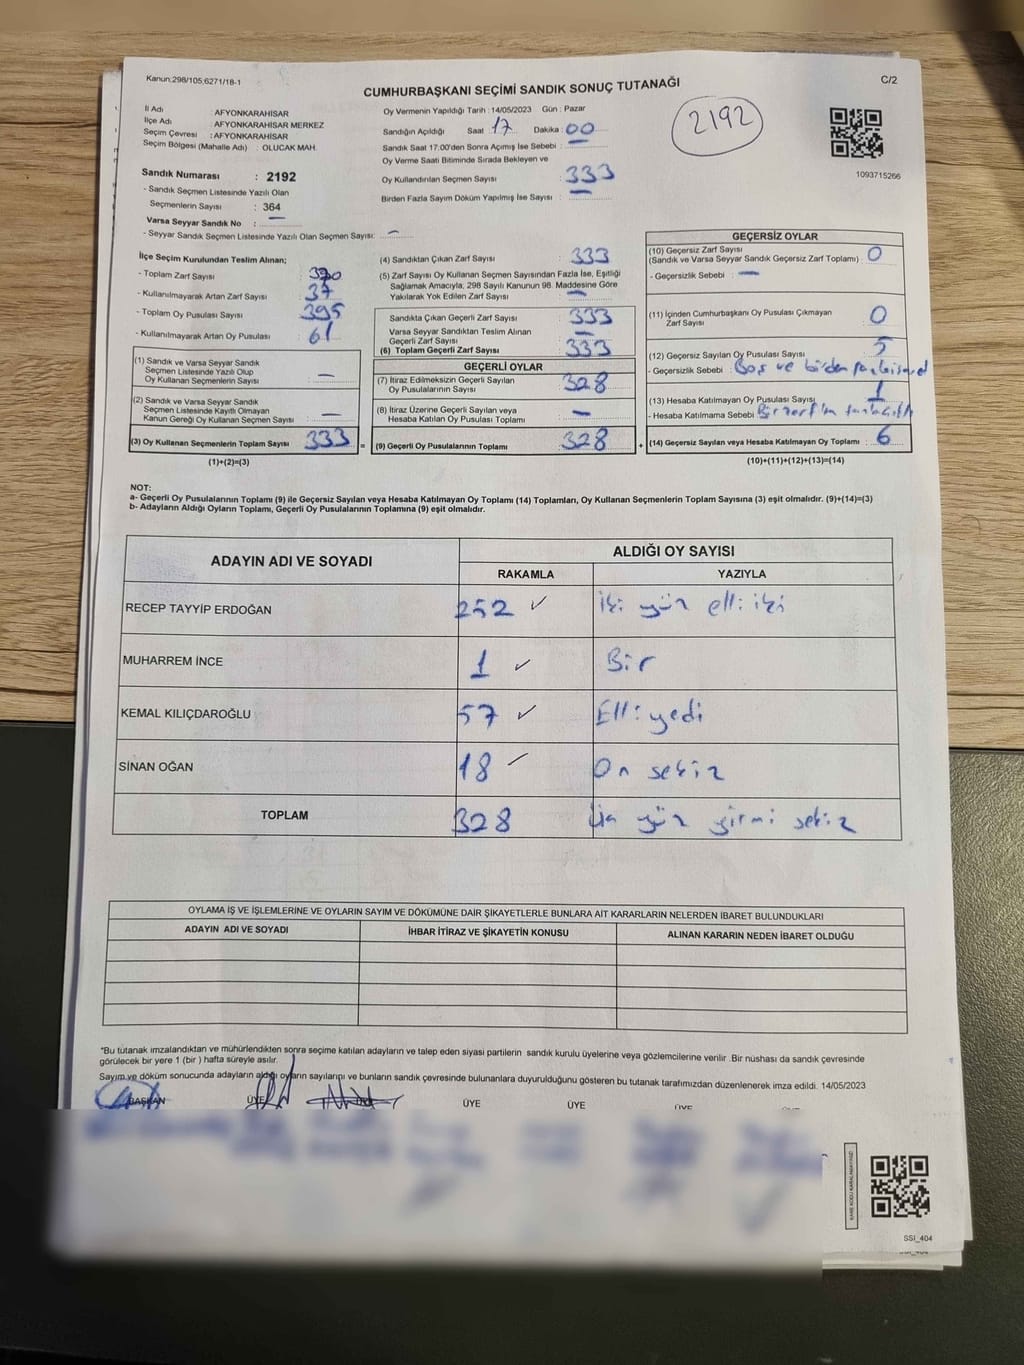 Kanun:298/105,6271/18-1
C/2
CUMHURBAŞKANI SEÇİMİ SANDIK SONUÇ TUTANAĞI
2192
İl Adı : AFYONKARAHİSAR
İlçe Adı : AFYONKARAHİSAR MERKEZ
Seçim Çevresi : AFYONKARAHİSAR
Seçim Bölgesi (Mahalle Adı) : OLUCAK MAH.
Sandık Numarası : 2192
- Sandık Seçmen Listesinde Yazılı Olan
Seçmenlerin Sayısı : 364
Varsa Seyyar Sandık No : —
- Seyyar Sandık Seçmen Listesinde Yazılı Olan Seçmen Sayısı: —
Oy Vermenin Yapıldığı Tarih : 14/05/2023 Gün : Pazar
Sandığın Açıldığı Saat : 17 Dakika : 00
Sandık Saat 17.00'den Sonra Açımış İse Sebebi : —
Oy Verme Saati Bitiminde Sırada Bekleyen ve
Oy Kullandırılan Seçmen Sayısı : 333
Birden Fazla Sayım Döküm Yapılmış İse Sayısı : —
1093715266
İlçe Seçim Kurulundan Teslim Alınan;
- Toplam Zarf Sayısı : 370
- Kullanılmayarak Artan Zarf Sayısı : 37
- Toplam Oy Pusulası Sayısı : 395
- Kullanılmayarak Artan Oy Pusulası : 61
(1) Sandık ve Varsa Seyyar Sandık
Seçmen Listesinde Yazılı Olup
Oy Kullanan Seçmenlerin Sayısı : —
(2) Sandık ve Varsa Seyyar Sandık
Seçmen Listesinde Kayıtlı Olmayan
Kanun Gereği Oy Kullanan Seçmen Sayısı : —
(3) Oy Kullanan Seçmenlerin Toplam Sayısı : 333 =
(1)+(2)=(3)
(4) Sandıktan Çıkan Zarf Sayısı : 333
(5) Zarf Sayısı Oy Kullanan Seçmen Sayısından Fazla İse, Eşitliği
Sağlamak Amacıyla, 298 Sayılı Kanunun 98. Maddesine Göre
Yakılarak Yok Edilen Zarf Sayısı : —
Sandıkta Çıkan Geçerli Zarf Sayısı : 333
Varsa Seyyar Sandıktan Teslim Alınan
Geçerli Zarf Sayısı : —
(6) Toplam Geçerli Zarf Sayısı : 333
GEÇERLİ OYLAR
(7) İtiraz Edilmeksizin Geçerli Sayılan
Oy Pusulalarının Sayısı : 328
(8) İtiraz Üzerine Geçerli Sayılan veya
Hesaba Katılan Oy Pusulası Toplamı : —
(9) Geçerli Oy Pusulalarının Toplamı : 328 +
GEÇERSİZ OYLAR
(10) Geçersiz Zarf Sayısı
(Sandık ve Varsa Seyyar Sandık Geçersiz Zarf Toplamı) : 0
- Geçersizlik Sebebi : —
(11) İçinden Cumhurbaşkanı Oy Pusulası Çıkmayan
Zarf Sayısı : 0
(12) Geçersiz Sayılan Oy Pusulası Sayısı : 5
- Geçersizlik Sebebi : Boş ve birden
(13) Hesaba Katılmayan Oy Pusulası Sayısı : 1
- Hesaba Katılmama Sebebi :
(14) Geçersiz Sayılan veya Hesaba Katılmayan Oy Toplamı : 6
(10)+(11)+(12)+(13)=(14)
NOT:
a- Geçerli Oy Pusulalarının Toplamı (9) ile Geçersiz Sayılan veya Hesaba Katılmayan Oy Toplamı (14) Toplamları, Oy Kullanan Seçmenlerin Toplam Sayısına (3) eşit olmalıdır. (9)+(14)=(3)
b- Adayların Aldığı Oyların Toplamı, Geçerli Oy Pusulalarının Toplamına (9) eşit olmalıdır.
ADAYIN ADI VE SOYADI ALDIĞI OY SAYISI
RAKAMLA YAZIYLA
RECEP TAYYİP ERDOĞAN 252 ✓ İki yüz elli iki
MUHARREM İNCE 1 ✓ Bir
KEMAL KILIÇDAROĞLU 57 ✓ Elli yedi
SİNAN OĞAN 18 ✓ On sekiz
TOPLAM 328 yüz yirmi sekiz
OYLAMA İŞ VE İŞLEMLERİNE VE OYLARIN SAYIM VE DÖKÜMÜNE DAİR ŞİKAYETLERLE BUNLARA AİT KARARLARIN NELERDEN İBARET BULUNDUKLARI
ADAYIN ADI VE SOYADI İHBAR İTİRAZ VE ŞİKAYETİN KONUSU ALINAN KARARIN NEDEN İBARET OLDUĞU
"Bu tutanak imzalandıktan ve mühürlendikten sonra seçime katılan adayların ve talep eden siyasi partilerin sandık kurulu üyelerine veya gözlemcilerine verilir .Bir nüshası da sandık çevresinde
görülecek bir yere 1 (bir ) hafta süreyle asılır.
Sayım ve döküm sonucunda adayların aldığı oyların sayılarını ve bunların sandık çevresinde bulunanlara duyurulduğunu gösteren bu tutanak tarafımızdan düzenlenerek imza edildi. 14/05/2023
BAŞKAN ÜYE ÜYE ÜYE ÜYE
SSI_404